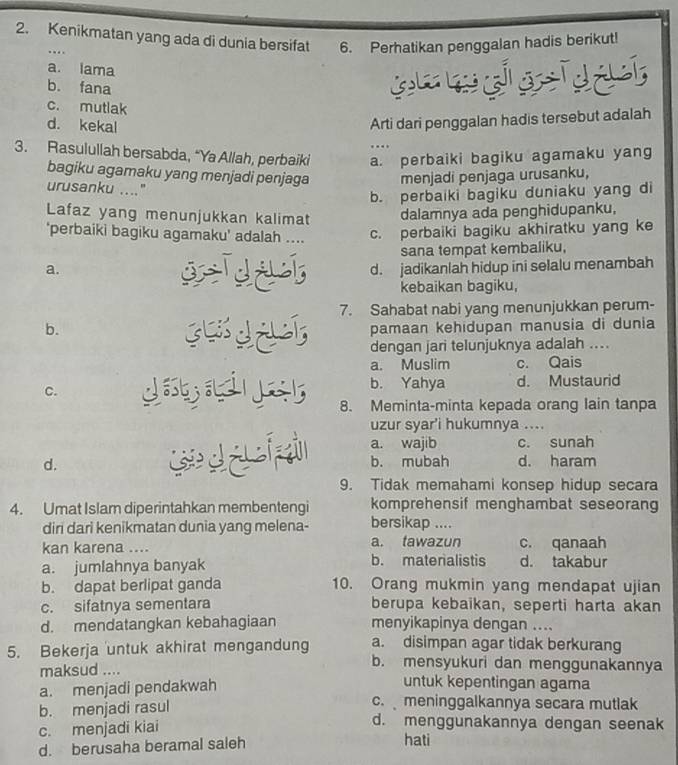 2. Kenikmatan yang ada di dunia bersifat
....
a. lama
b. fana
c. mutlak
d. kekal
3. Rasulullah bersabda, "Ya Allah, perbaiki
bagiku agamaku yang menjadi penjaga
urusanku ...."
Lafaz yang menunjukkan kalimat
'perbaiki bagiku agamaku' adalah ....
a. وَأَصْلِحْ لِيْ آخِرَتِيْ
b. وَأَصْلِحْ لِيْ دُنْيَايَ
c. وَاجْعَلْ الْحَيَاةَ زِيَادَةً لِيْ
d. اَللّٰهُمَّ أَصْلِحْ لِيْ دِيْنِيْ
4. Umat Islam diperintahkan membentengi
diri dari kenikmatan dunia yang melena-
kan karena ....
a. jumlahnya banyak
b. dapat berlipat ganda
c. sifatnya sementara
d. mendatangkan kebahagiaan
5. Bekerja untuk akhirat mengandung
maksud ....
a. menjadi pendakwah
b. menjadi rasul
c. menjadi kiai
d. berusaha beramal saleh
6. Perhatikan penggalan hadis berikut!
وَأَصْلِحْ لِيْ آخِرَتِيْ الَّتِيْ فِيْهَا مَعَادِيْ
Arti dari penggalan hadis tersebut adalah
....
a. perbaiki bagiku agamaku yang
menjadi penjaga urusanku,
b. perbaiki bagiku duniaku yang di
dalamnya ada penghidupanku,
c. perbaiki bagiku akhiratku yang ke
sana tempat kembaliku,
d. jadikanlah hidup ini selalu menambah
kebaikan bagiku,
7. Sahabat nabi yang menunjukkan perum-
pamaan kehidupan manusia di dunia
dengan jari telunjuknya adalah ....
a. Muslim c. Qais
b. Yahya d. Mustaurid
8. Meminta-minta kepada orang lain tanpa
uzur syar'i hukumnya ....
a. wajib c. sunah
b. mubah d. haram
9. Tidak memahami konsep hidup secara
komprehensif menghambat seseorang
bersikap ....
a. tawazun c. qanaah
b. materialistis d. takabur
10. Orang mukmin yang mendapat ujian
berupa kebaikan, seperti harta akan
menyikapinya dengan ....
a. disimpan agar tidak berkurang
b. mensyukuri dan menggunakannya
untuk kepentingan agama
c. meninggalkannya secara mutlak
d. menggunakannya dengan seenak
hati